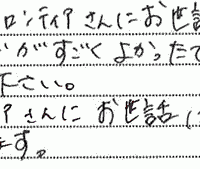 ロンティアさんにお世話
がすごくよかったで
下さい。
アさんにお世話に
ます。